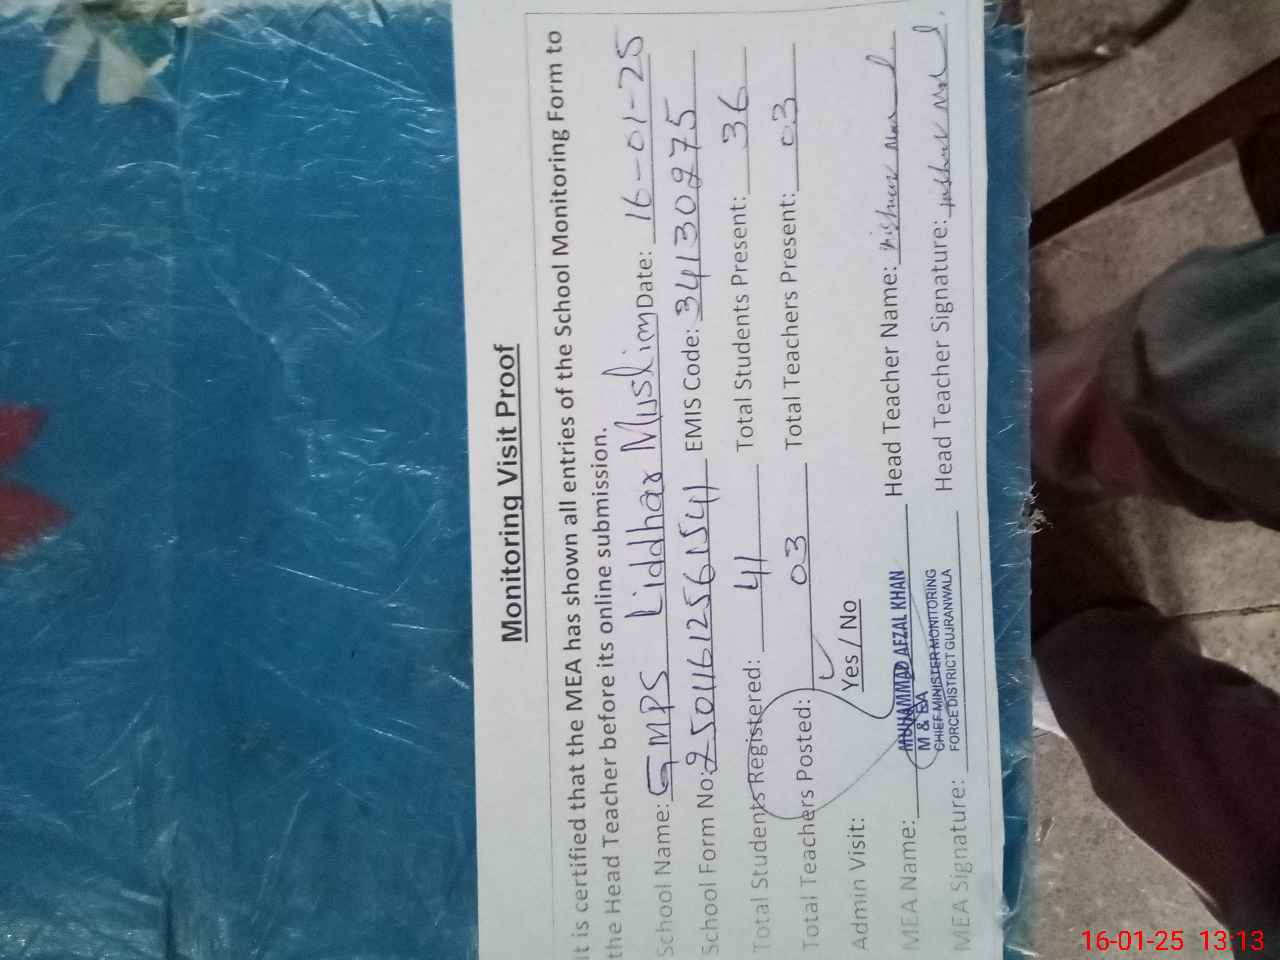 Monitoring Visit Proof
It is certified that the MEA has shown all entries of the School Monitoring Form to
the Head Teacher before its online submission.
School Name: GMPS Liddhar Muslim Date: 16-01-25
School Form No: 250116125616541 EMIS Code: 34130275
Total Students Registered: 41 Total Students Present: 36
Total Teachers Posted: 03 Total Teachers Present: 03
Admin Visit: Yes / No
MEA Name: MUHAMMAD AFZAL KHAN Head Teacher Name:
M & EA
CHIEF MINISTER MONITORING
FORCE DISTRICT GUJRANWALA
MEA Signature: Head Teacher Signature:
16-01-25 13:13